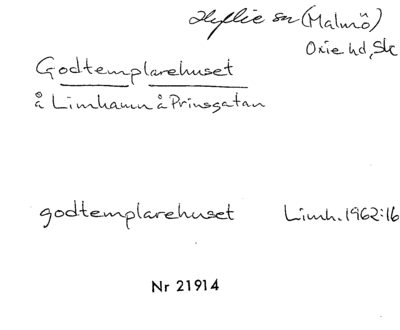 Hyllie sn (Malmö)
Oxie hd, Sk
Godtemplarehuset
å Limhamn å Prinsgatan
godtemplarehuset Limh. 1962:16
Nr 21914